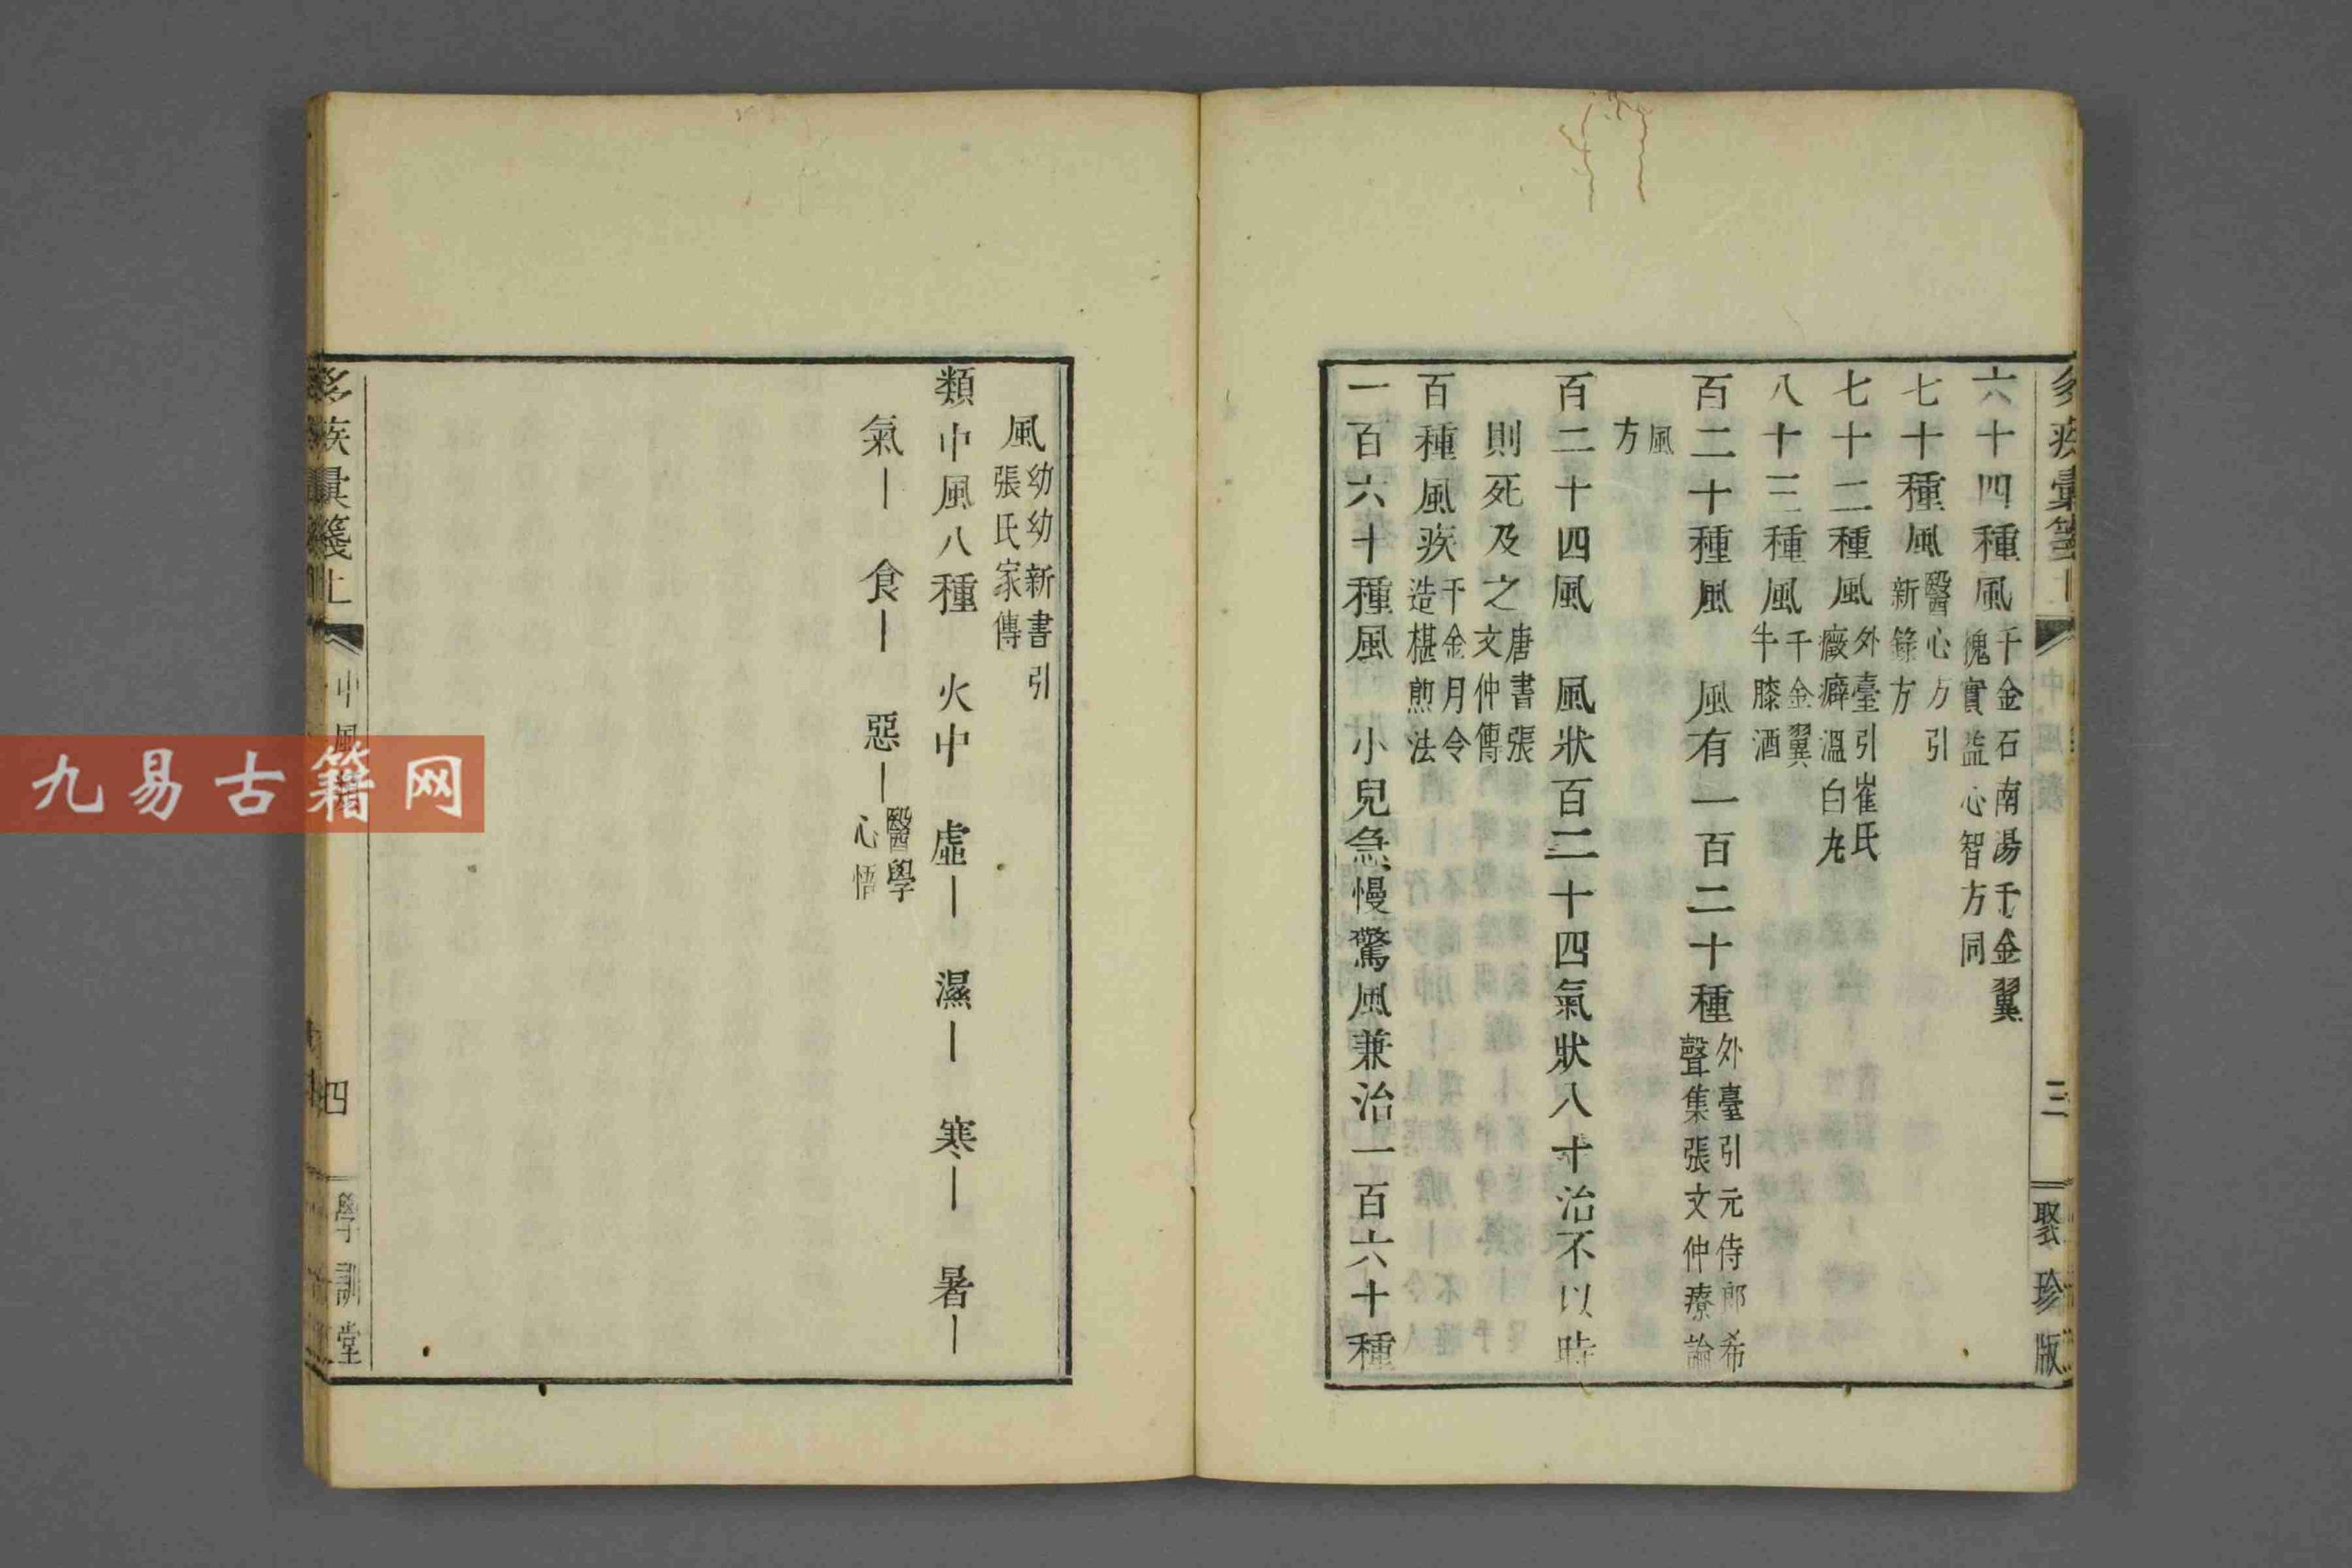 彙箋
三
聚珍版
六十四種風千金石南湯千金翼槐實益心智方同
七十種風醫心方引新錄方
七十二種風外臺引崔氏癥癖溫白丸
八十三種風千金翼牛膝酒
百二十種風 風有一百二十種外臺引元侍郎希聲集張文仲療論
風方
百二十四風 風狀百二十四氣狀八十治不以時
則死及之唐書張文仲傳
百種風疾千金月令造椹煎法
一百六十種風 小兒急慢驚風兼治一百六十種
風幼幼新書引張氏家傳
類中風八種 火中 虛｜ 濕｜ 寒｜ 暑｜
氣｜ 食｜ 惡｜醫學心悟
彙箋上
中風
四
學訓堂
九易古籍网